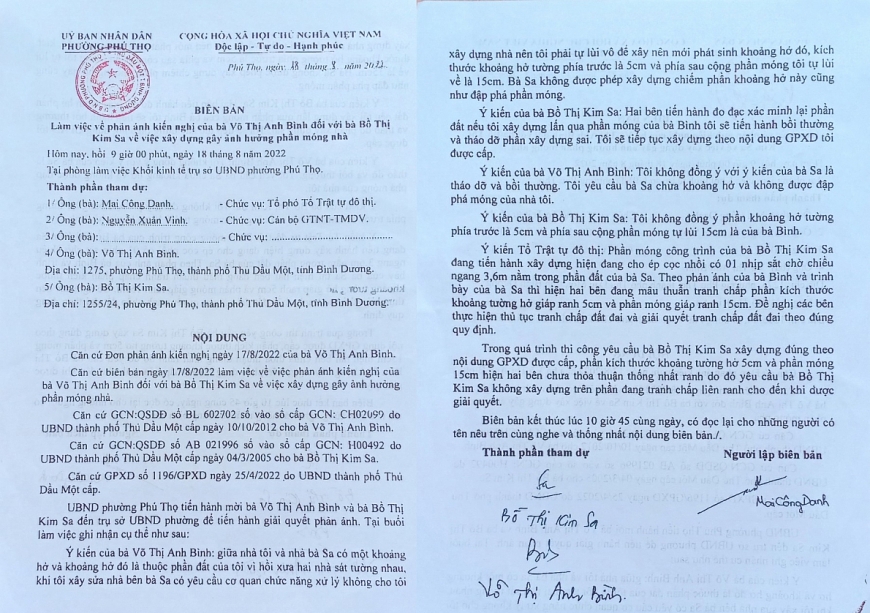 UỶ BAN NHÂN DÂN
PHƯỜNG PHÚ THỌ
CỘNG HÒA XÃ HỘI CHỦ NGHĨA VIỆT NAM
Độc lập - Tự do - Hạnh phúc
Phú Thọ, ngày 18 tháng 8 năm 2022
BIÊN BẢN
Làm việc về phản ánh kiến nghị của bà Võ Thị Anh Bình đối với bà Bồ Thị
Kim Sa về việc xây dựng gây ảnh hưởng phần móng nhà
Hôm nay, hồi 9 giờ 00 phút, ngày 18 tháng 8 năm 2022
Tại phòng làm việc Khối kinh tế trụ sở UBND phường Phú Thọ.
Thành phần tham dự:
1/ Ông (bà): Mai Công Danh. - Chức vụ: Tổ phó Tổ Trật tự đô thị.
2/ Ông (bà): Nguyễn Xuân Vinh. - Chức vụ: Cán bộ GTNT-TMDV.
3/ Ông (bà): ........................................ - Chức vụ: ........................................
4/ Ông (bà): Võ Thị Anh Bình.
Địa chỉ: 1275, phường Phú Thọ, thành phố Thủ Dầu Một, tỉnh Bình Dương.
5/ Ông (bà): Bồ Thị Kim Sa.
Địa chỉ: 1255/24, phường Phú Thọ, thành phố Thủ Dầu Một, tỉnh Bình Dương.
NỘI DUNG
Căn cứ Đơn phản ánh kiến nghị ngày 17/8/2022 của bà Võ Thị Anh Bình.
Căn cứ biên bản ngày 17/8/2022 làm việc về việc phản ánh kiến nghị của
bà Võ Thị Anh Bình đối với bà Bồ Thị Kim Sa về việc xây dựng gây ảnh hưởng
phần móng nhà.
Căn cứ GCN:QSDĐ số BL 602702 số vào sổ cấp GCN: CH02099 do
UBND thành phố Thủ Dầu Một cấp ngày 10/10/2012 cho bà Võ Thị Anh Bình.
Căn cứ GCN:QSDĐ số AB 021996 số vào sổ cấp GCN: H00492 do
UBND thành phố Thủ Dầu Một cấp ngày 04/3/2005 cho bà Bồ Thị Kim Sa.
Căn cứ GPXD số 1196/GPXD ngày 25/4/2022 do UBND thành phố Thủ
Dầu Một cấp.
UBND phường Phú Thọ tiến hành mời bà Võ Thị Anh Bình và bà Bồ Thị
Kim Sa đến trụ sở UBND phường để tiến hành giải quyết phản ánh. Tại buổi
làm việc ghi nhận cụ thể như sau:
Ý kiến của bà Võ Thị Anh Bình: giữa nhà tôi và nhà bà Sa có một khoảng
hở và khoảng hở đó là thuộc phần đất của tôi vì hồi xưa hai nhà sát tường nhau,
khi tôi xây sửa nhà bên bà Sa có yêu cầu cơ quan chức năng xử lý không cho tôi
xây dựng nhà nên tôi phải tự lùi vô để xây nên mới phát sinh khoảng hở đó, kích
thước khoảng hở tường phía trước là 5cm và phía sau cộng phần móng tôi tự lùi
về là 15cm. Bà Sa không được phép xây dựng chiếm phần khoảng hở này cũng
như đập phá phần móng.
Ý kiến của bà Bồ Thị Kim Sa: Hai bên tiến hành đo đạc xác minh lại phần
đất nếu tôi xây dựng lấn qua phần móng của bà Bình tôi sẽ tiến hành bồi thường
và tháo dỡ phần xây dựng sai. Tôi sẽ tiếp tục xây dựng theo nội dung GPXD tôi
được cấp.
Ý kiến của bà Võ Thị Anh Bình: Tôi không đồng ý với ý kiến của bà Sa là
tháo dỡ và bồi thường. Tôi yêu cầu bà Sa chừa khoảng hở và không được đập
phá móng của nhà tôi.
Ý kiến của bà Bồ Thị Kim Sa: Tôi không đồng ý phần khoảng hở tường
phía trước là 5cm và phía sau cộng phần móng tự lùi 15cm là của bà Bình.
Ý kiến Tổ Trật tự đô thị: Phần móng công trình của bà Bồ Thị Kim Sa
đang tiến hành xây dựng hiện đang cho ép cọc nhồi có 01 nhịp sắt chờ chiều
ngang 3,6m nằm trong phần đất của bà Sa. Theo phản ánh của bà Bình và trình
bày của bà Sa thì hiện hai bên đang mâu thuẫn tranh chấp phần kích thước
khoảng tường hở giáp ranh 5cm và phần móng giáp ranh 15cm. Đề nghị các bên
thực hiện thủ tục tranh chấp đất đai và giải quyết tranh chấp đất đai theo đúng
quy định.
Trong quá trình thi công yêu cầu bà Bồ Thị Kim Sa xây dựng đúng theo
nội dung GPXD được cấp, phần kích thước khoảng tường hở 5cm và phần móng
15cm hiện hai bên chưa thỏa thuận thống nhất ranh do đó yêu cầu bà Bồ Thị
Kim Sa không xây dựng trên phần đang tranh chấp liên ranh cho đến khi được
giải quyết.
Biên bản kết thúc lúc 10 giờ 45 cùng ngày, có đọc lại cho những người có
tên nêu trên cùng nghe và thống nhất nội dung biên bản./.
Thành phần tham dự
Người lập biên bản
Sa
Bồ Thị Kim Sa
Bình
Võ Thị Anh Bình
Mai Công Danh